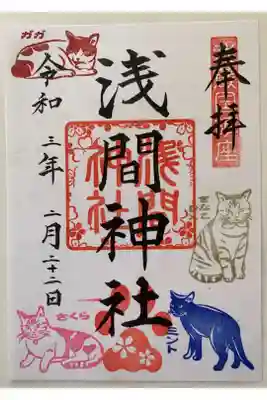 奉拝
浅間神社
浅間
神社
令和三年二月二十二日
ガガ
きなこ
ミント
さくら